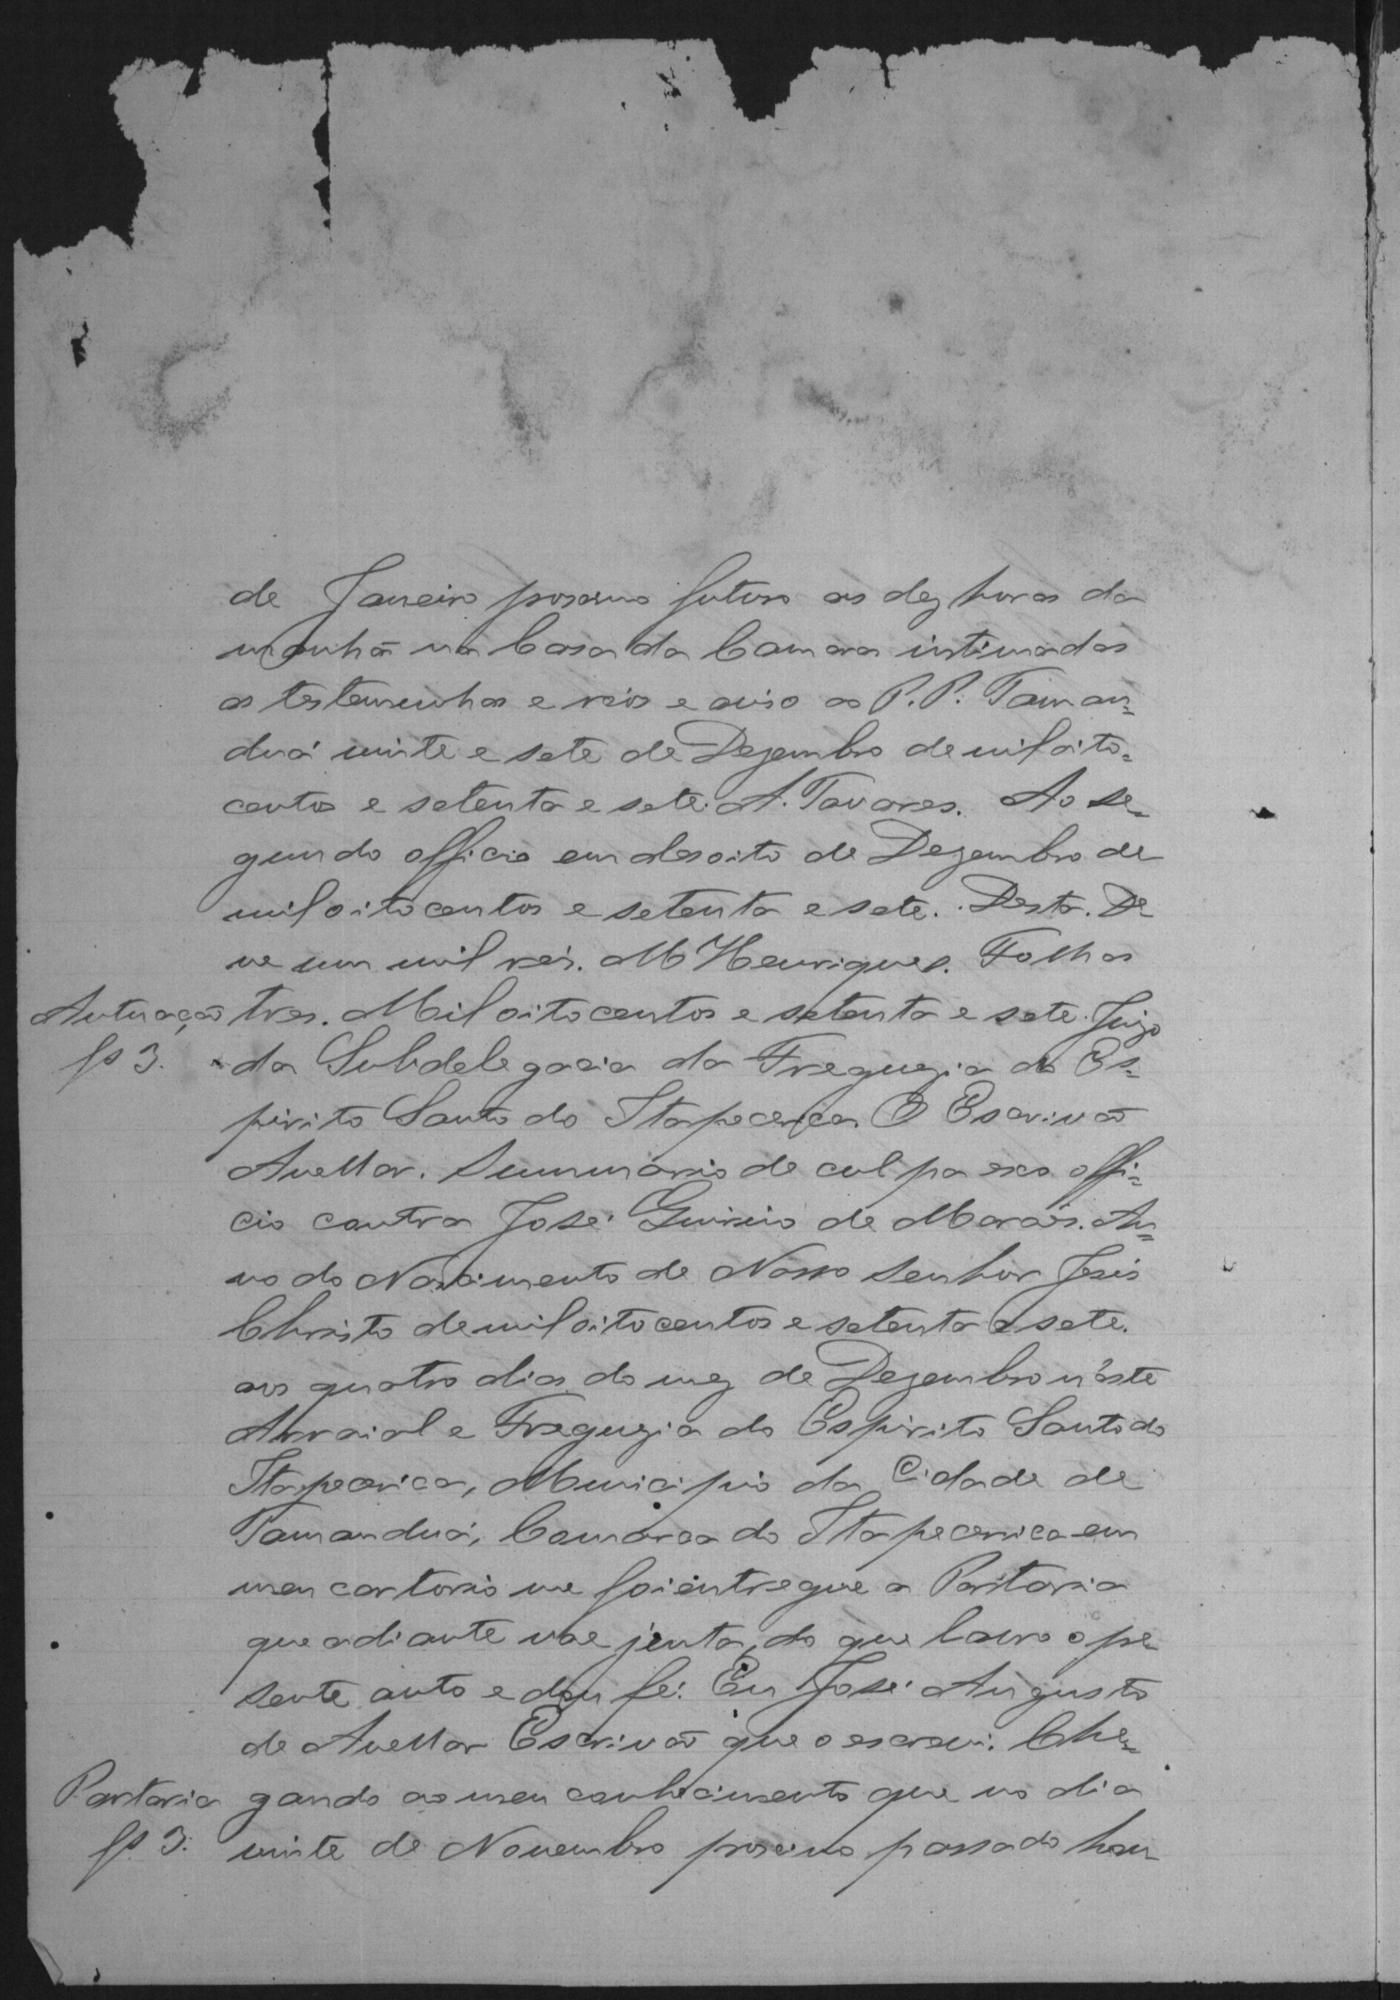 de Janeiro proximo futuro as dez horas da
manhã na Casa da Camara intimadas
as testemunhas e réos e aviso ao P. P. Taman=
duá vinte e sete de Dezembro de mil oito=
centos e setenta e sete. A. Tavares. Ao se=
gundo officio em desoito de Dezembro de
mil oito centos e setenta e sete. Desta. De
ve um mil reis. M Henriques. Folhas
Autuação tres. Mil oito centos e setenta e sete. Juizo
fs 3. da Subdelegacia da Freguezia do Es=
pirito Santo do Itapecerica O Escrivão
Avellar. Summario de culpa exo offi=
cio contra José de Moraes. An=
no do Nascimento de Nosso Senhor Jesus
Christo de mil oito centos e setenta e sete.
aos quatro dias do mez de Dezembro n'este
Arraial e Freguezia do Espirito Santo do
Itapecerica, Municipio da Cidade de
Tamanduá, Comarca do Itapecerica em
meu cartorio me foi entregue a Portaria
que adiante vae junta, do que lavro o pre
sente auto e dou fé. Eu José Augusto
de Avellar Escrivão que o escrevi. Che=
Portaria gando ao meu conhecimento que no dia
fs 3. vinte de Novembro proximo passado hou